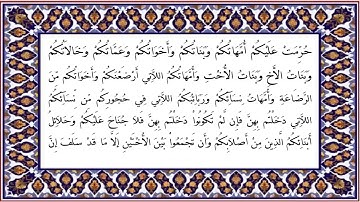 حُرِّمَتْ عَلَيْكُمْ أُمَّهَاتُكُمْ وَبَنَاتُكُمْ وَأَخَوَاتُكُمْ وَعَمَّاتُكُمْ وَخَالَاتُكُمْ
وَبَنَاتُ الْأَخِ وَبَنَاتُ الْأُخْتِ وَأُمَّهَاتُكُمُ اللَّاتِي أَرْضَعْنَكُمْ وَأَخَوَاتُكُم مِّنَ
الرَّضَاعَةِ وَأُمَّهَاتُ نِسَائِكُمْ وَرَبَائِبُكُمُ اللَّاتِي فِي حُجُورِكُم مِّن نِّسَائِكُمُ
اللَّاتِي دَخَلْتُم بِهِنَّ فَإِن لَّمْ تَكُونُوا دَخَلْتُم بِهِنَّ فَلَا جُنَاحَ عَلَيْكُمْ وَحَلَائِلُ
أَبْنَائِكُمُ الَّذِينَ مِنْ أَصْلَابِكُمْ وَأَن تَجْمَعُوا بَيْنَ الْأُخْتَيْنِ إِلَّا مَا قَدْ سَلَفَ إِنَّ